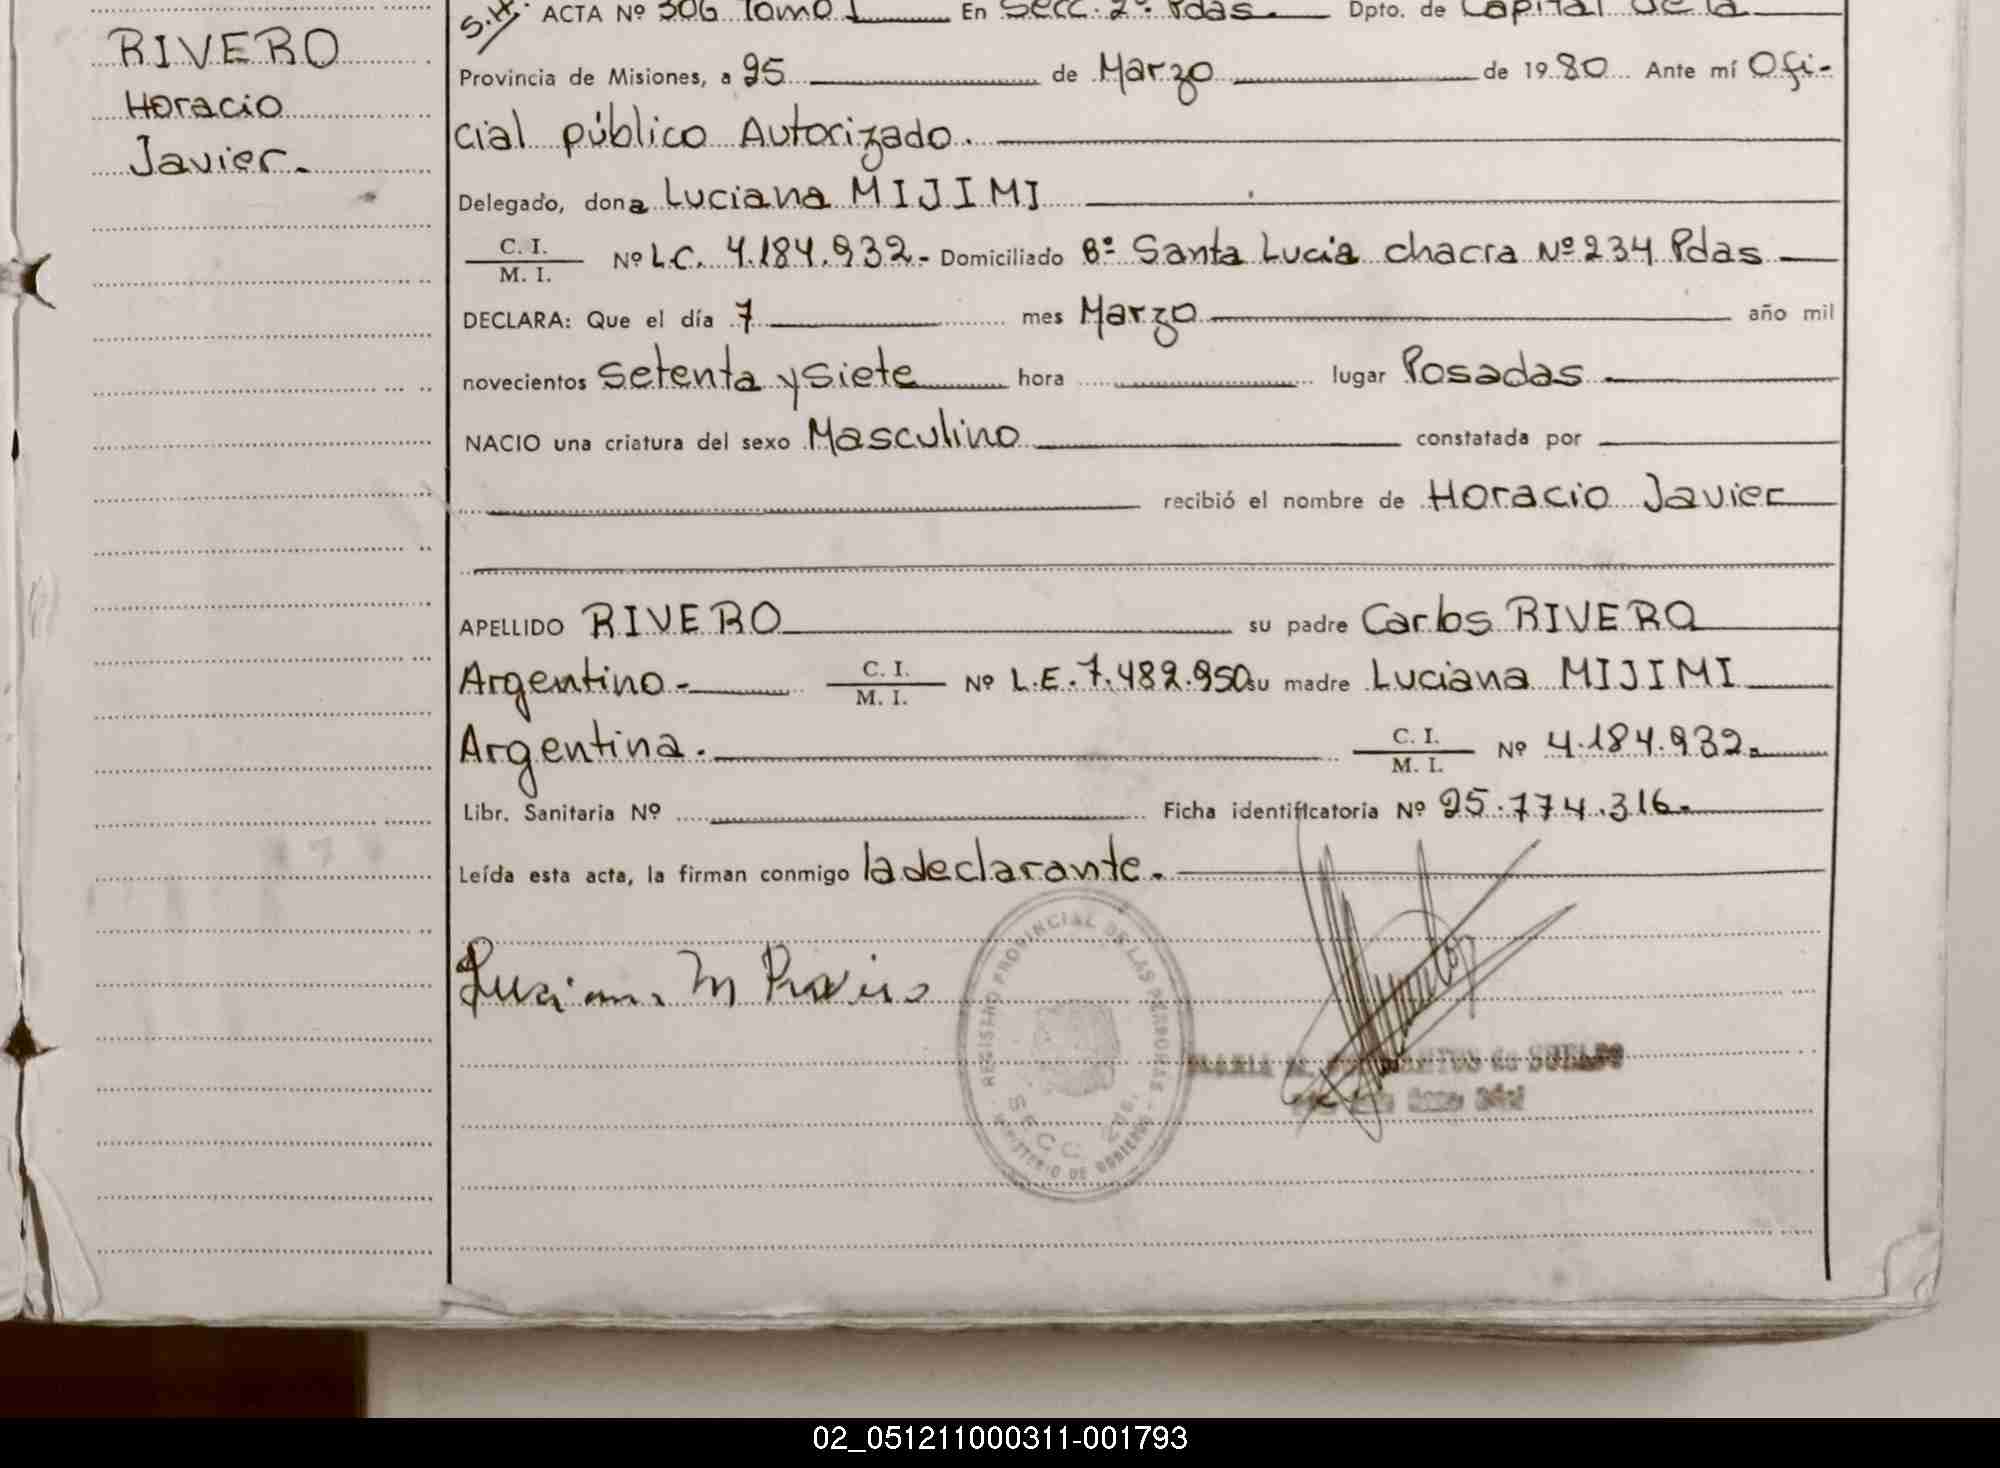 RIVERO
Horacio
Javier.-
S.H. ACTA Nº 306 Tomo I En Secc. 2º. Pdas. Dpto. de Capital de la
Provincia de Misiones, a 25 de Marzo de 1980 Ante mí Ofi-
cial público Autorizado.
Delegado, dona Luciana MIJIMI
C. I.
M. I. Nº L.C. 4.184.932.- Domiciliado Bº Santa Lucia chacra Nº 234 Pdas
DECLARA: Que el día 7 mes Marzo año mil
novecientos setenta y siete hora lugar Posadas
NACIO una criatura del sexo Masculino constatada por
recibió el nombre de Horacio Javier
APELLIDO RIVERO su padre Carlos RIVERO
Argentino.- C. I.
M. I. Nº L.E. 7.482.950 su madre Luciana MIJIMI
Argentina. C. I.
M. I. Nº 4.184.932.
Libr. Sanitaria Nº Ficha identificatoria Nº 25.774.316.
Leída esta acta, la firman conmigo la declarante.
REGISTRO PROVINCIAL DE LAS PERSONAS
SECC. 2da.
MINISTERIO DE GOBIERNO
02_051211000311-001793